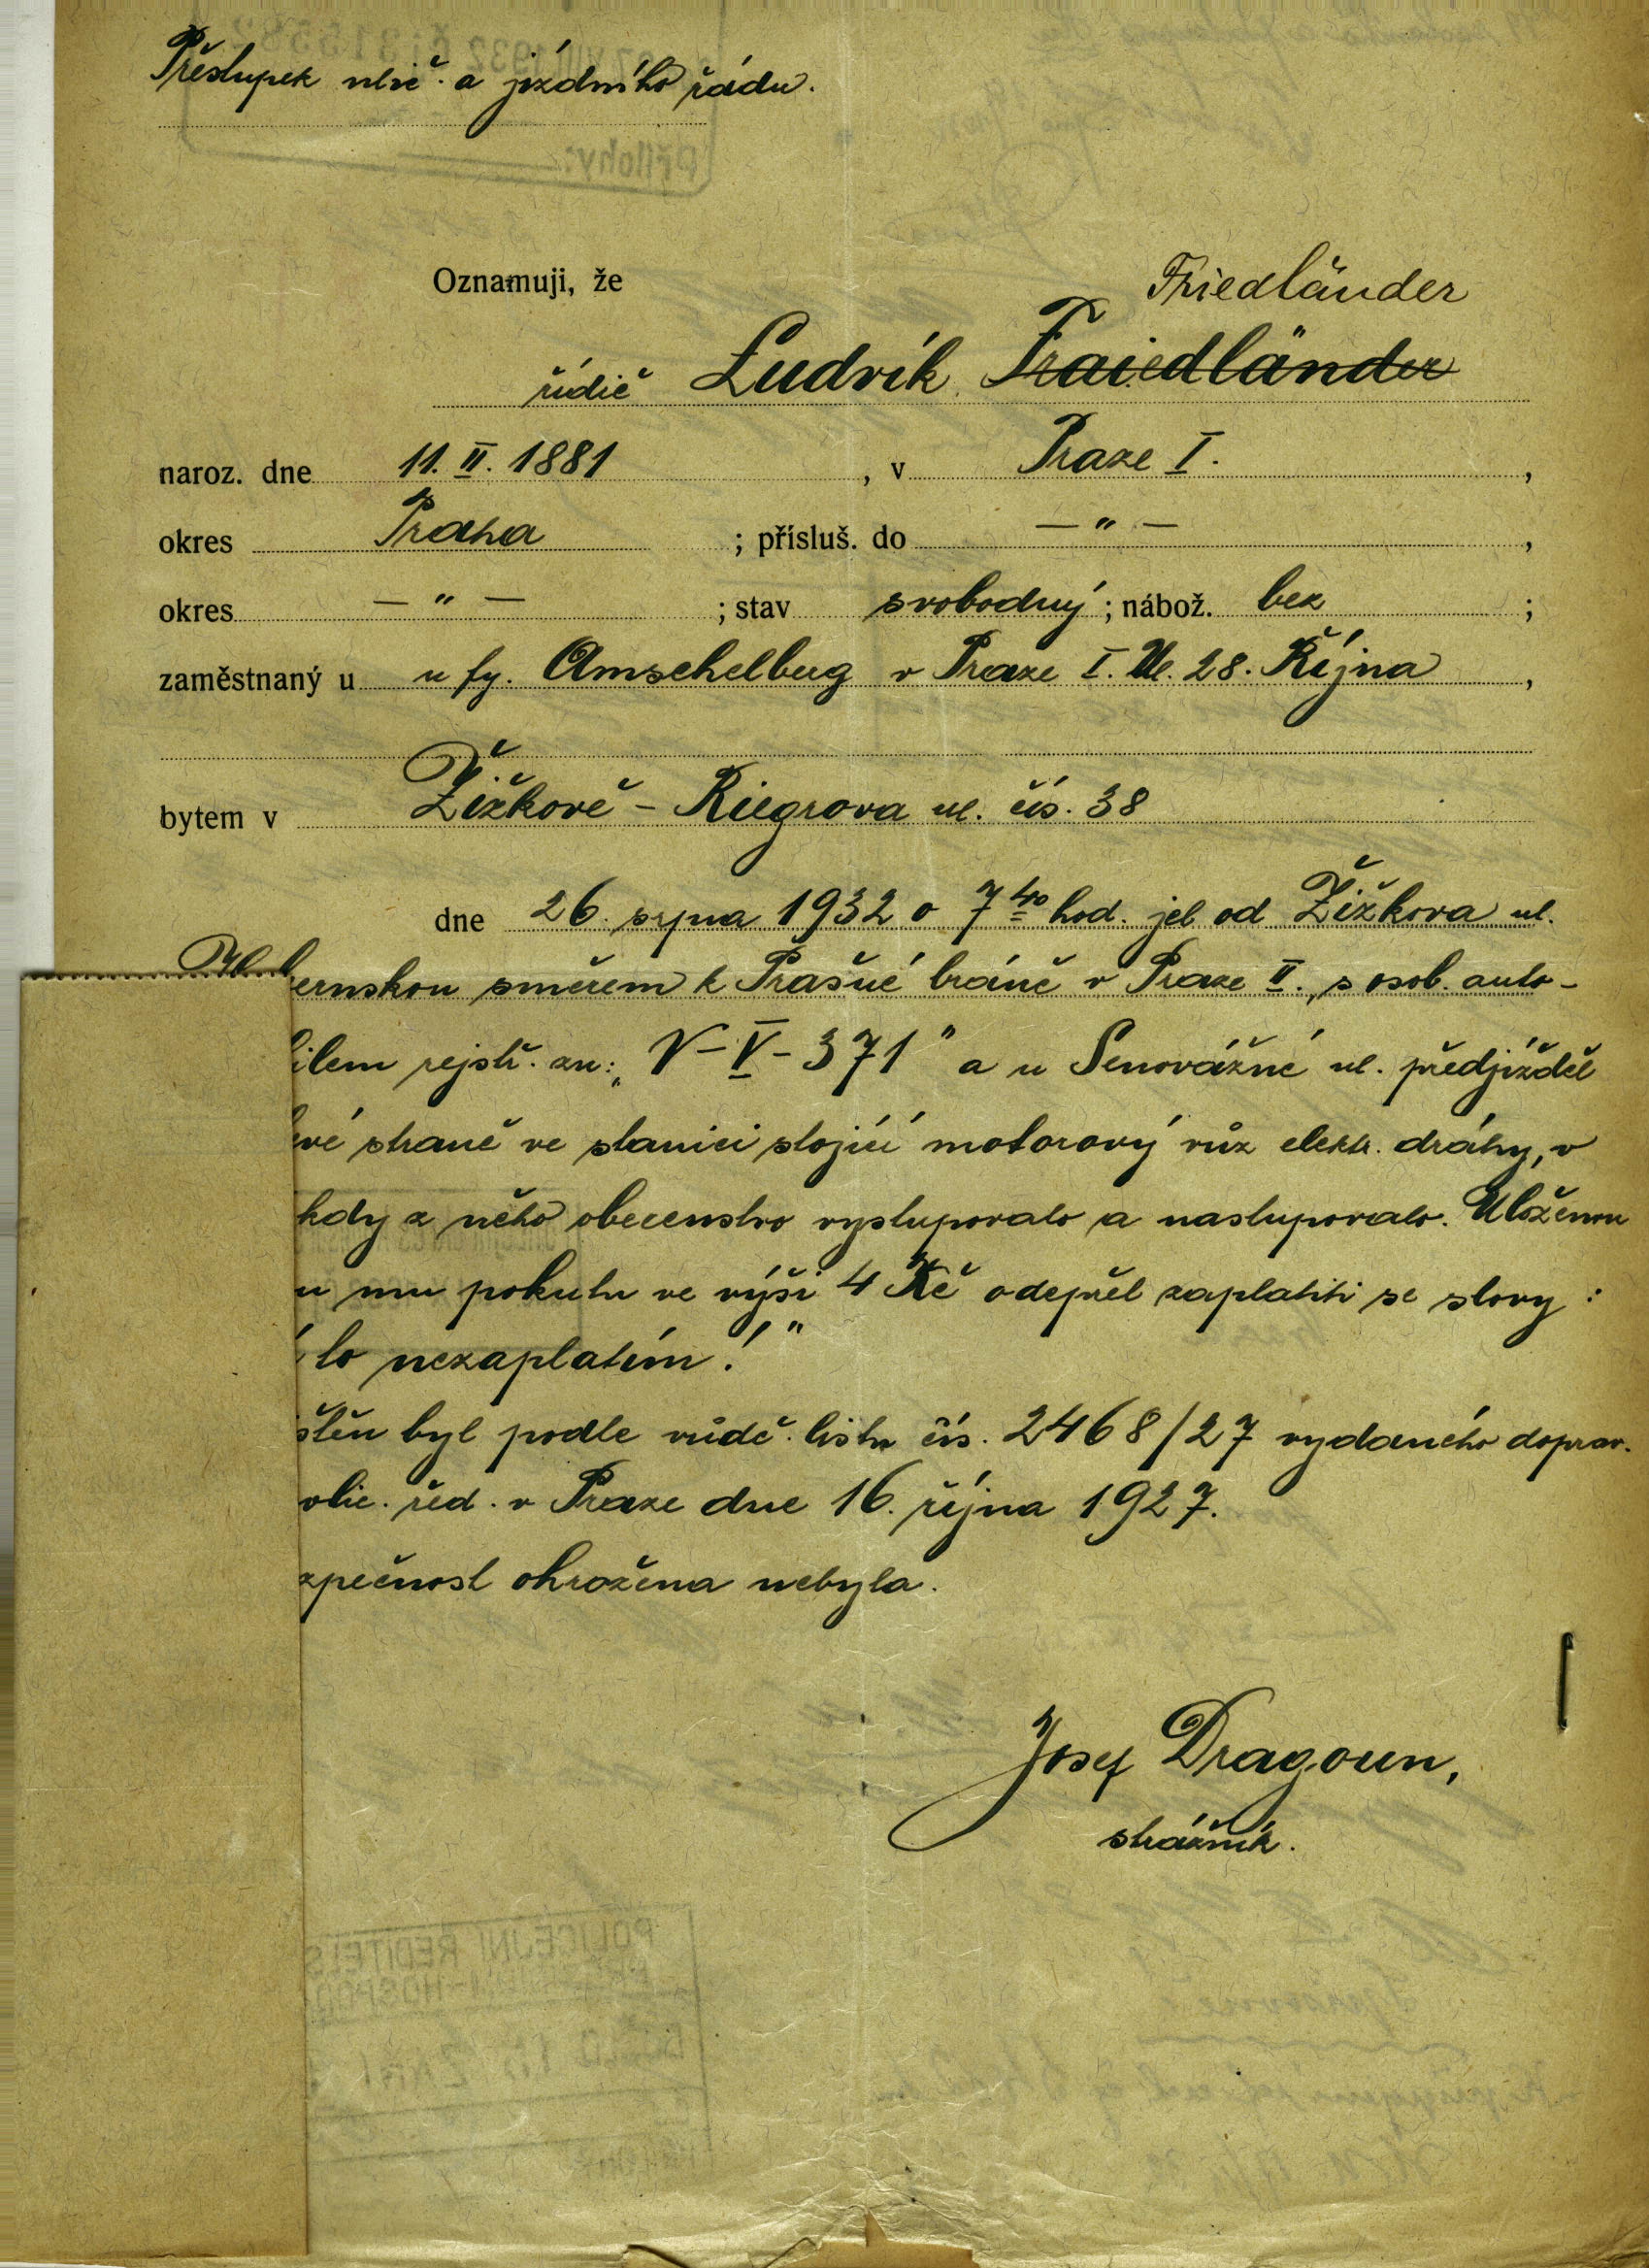 Přestupek ulič. a jízdního řádu.
Přílohy:
Oznamuji, že
Friedländer
řidič Ludvík Fraiedländer
naroz. dne 11. II. 1881, v Praze I.,
okres Praha; přísluš. do — " —,
okres — " —; stav svobodný; nábož. bez;
zaměstnaný u u fy. Amschelberg v Praze I. Ul. 28. Října,
bytem v Žižkově - Riegrova ul. čís. 38
dne 26. srpna 1932 o 7 40 hod. jel od Žižkova ul.
ernskou směrem k Prašné bráně v Praze II., s osob. auto-
ilem rejstř. zn: „N-V-371" a u Senovážné ul. předjížděl
vé straně ve stanici stojící motorový vůz elektr. dráhy, v
kdy z něho obecenstvo vystupovalo a nastupovalo. Uloženou
u mu pokutu ve výši 4 Kč odepřel zaplatiti se slovy:
to nezaplatím!"
štěn byl podle vůdč. listu čís. 2468/27 vydaného doprav.
olic. řed. v Praze dne 16. října 1927.
zpečnost ohrožena nebyla.
Josef Dragoun,
strážník.
POLICEJNÍ ŘEDITELS